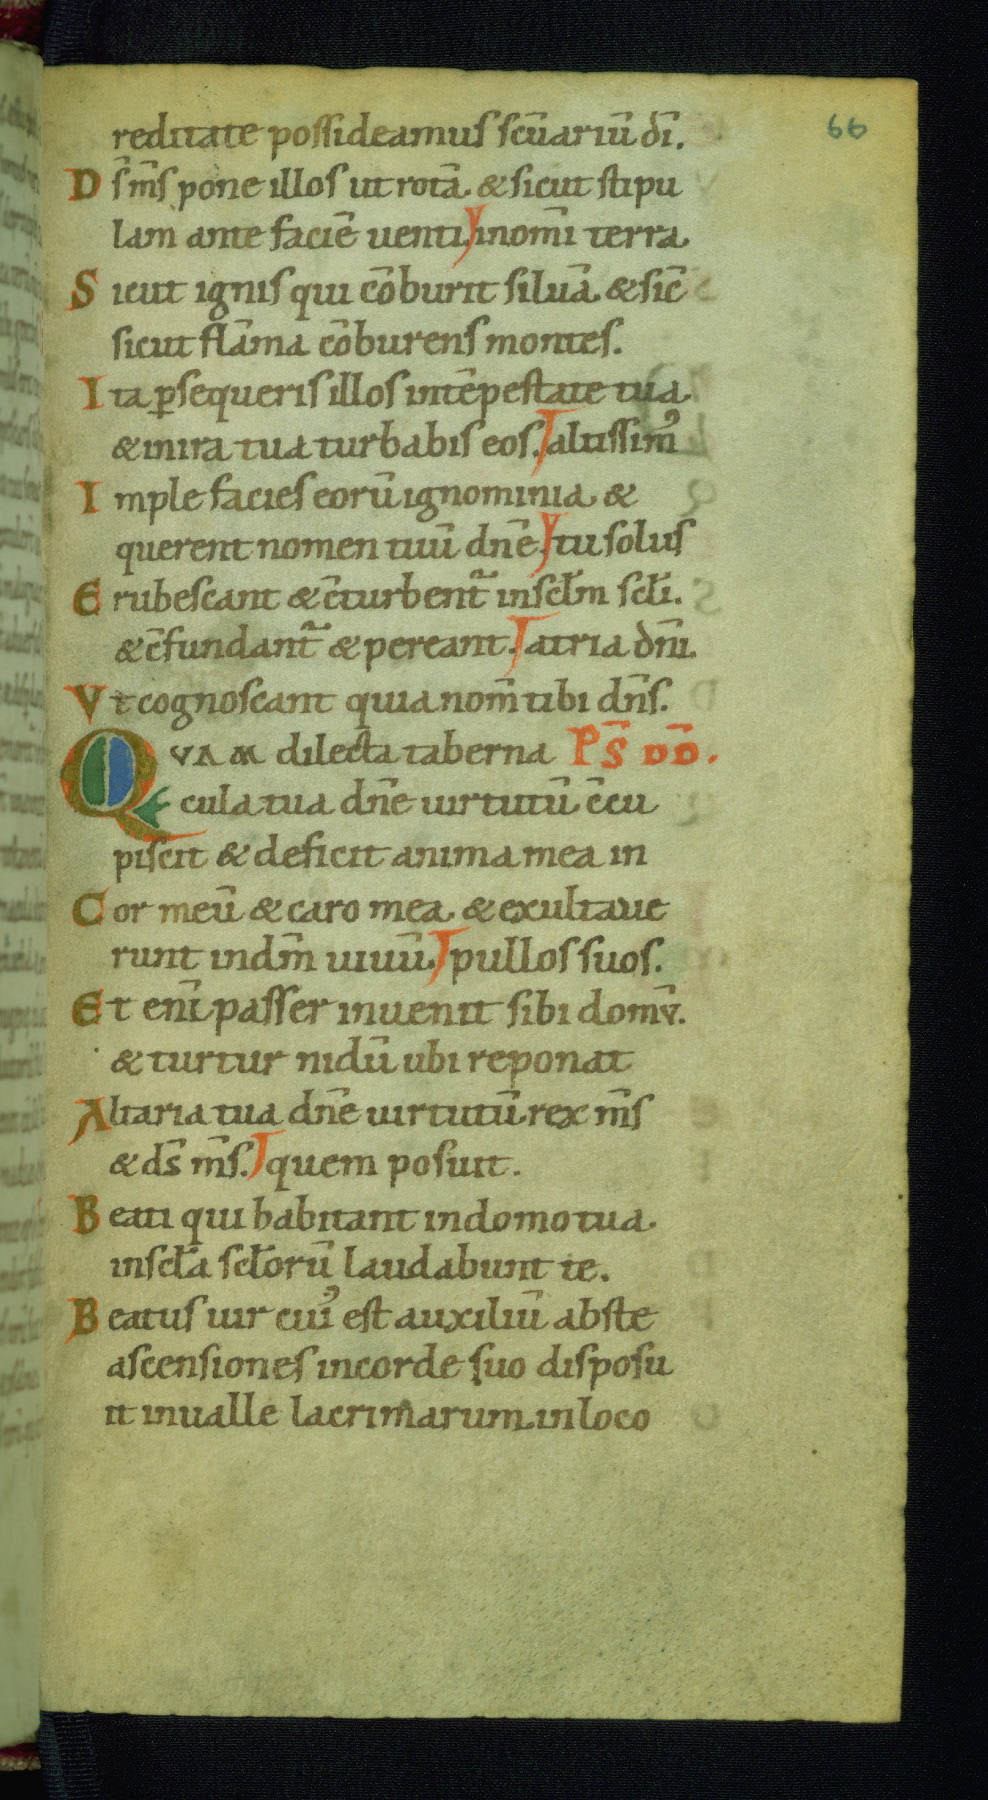 66
reditate possideamus scūariū dī.
D s̄ m̄s pone illos ut rotā. & sicut stipu
lam ante faciē uenti. in om̄i terra.
S icut ignis qui cōburit siluā. & sic̄
sicut flāma cōburens montes.
I ta p̱sequeris illos in tēpestate tua.
& in ira tua turbabis eos. altissim᾽
I mple facies eorū ignominia. &
querent nomen tuū dn̄e. tu solus
E rubescant & c̄turbent᷑ in scl̄m scl̄i.
& c̄fundant᷑ & pereant. atria dn̄i.
V t cognoscant quia nom̄ tibi dn̄s.
QVAM dilecta taberna P̄S D̄D.
cula tua dn̄e uirtutū c̄cu
piscit & deficit anima mea in
C or meū & caro mea. & exultaue
runt in dm̄ uiuū. pullos suos.
E t enī passer inuenit sibi domv̄.
& turtur nidū ubi reponat
A ltaria tua dn̄e uirtutū. rex m̄s
& ds̄ m̄s. quem posuit.
B eati qui habitant in domo tua.
in scl̄a scl̄orū laudabunt te.
B eatus uir cui᾽ est auxiliū abs te
ascensiones in corde suo disposu
it in ualle lacrimarum. in loco